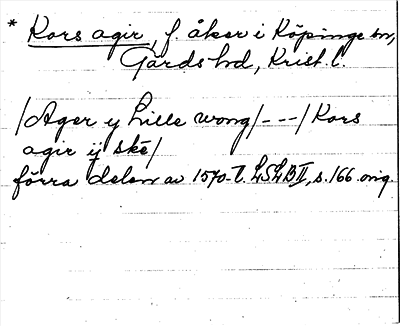 * Kors agir, f. åker i Köpinge sn,
Gärds hd, Krist. l.
/Ager y Lille wong/---/Kors
agir ij ské/
förra delen av 1570-t. LSLB II, s. 166 orig.